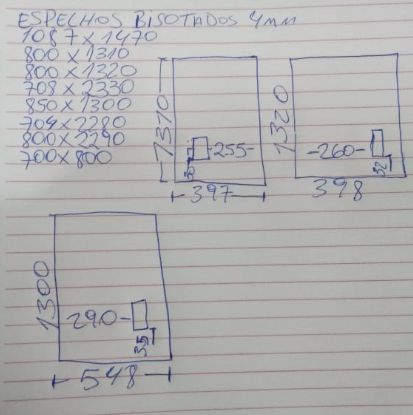 ESPELHOS BISOTADOS 4mm
1087x1470
800x1310
800x1320
708x2330
850x1300
704x2280
800x2290
700x800
1310
255
397
1320
260
32
398
1300
290
35
548